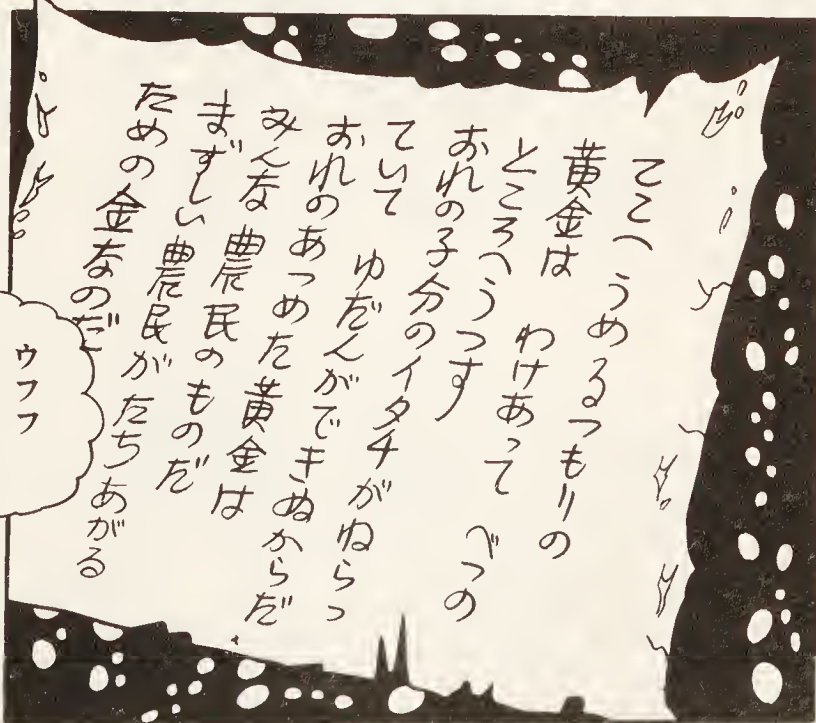 ここへ うめるつもりの
黄金は わけあって べつの
ところへうつす
おれの子分のイタチがねらっ
ていて ゆだんができぬからだ
おれのあつめた黄金は
みんな 農民のものだ
まずしい農民がたちあがる
ための金なのだ
ウフフ